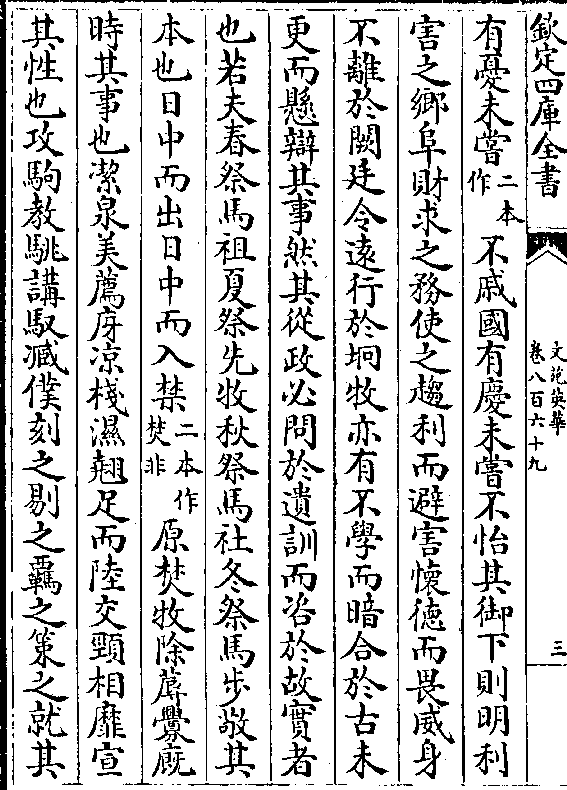 欽定四庫全書
文苑英華
卷八百六十九
三
有憂未嘗二本作不戚國有慶未嘗不怡其御下則明利
害之鄉阜財求之務使之趨利而避害懷德而畏威身
不離於闕廷令遠行於坰牧亦有不學而暗合於古未
更而懸辯其事然其從政必問於遺訓而咨於故實者
也若夫春祭馬祖夏祭先牧秋祭馬社冬祭馬步敬其
本也日中而出日中而入禁二本作焚非原焚牧除蓐釁廐
時其事也潔泉美薦庌凉棧濕翹足而陸交頸相靡宣
其性也攻駒教駣講馭臧僕刻之剔之羈之策之就其